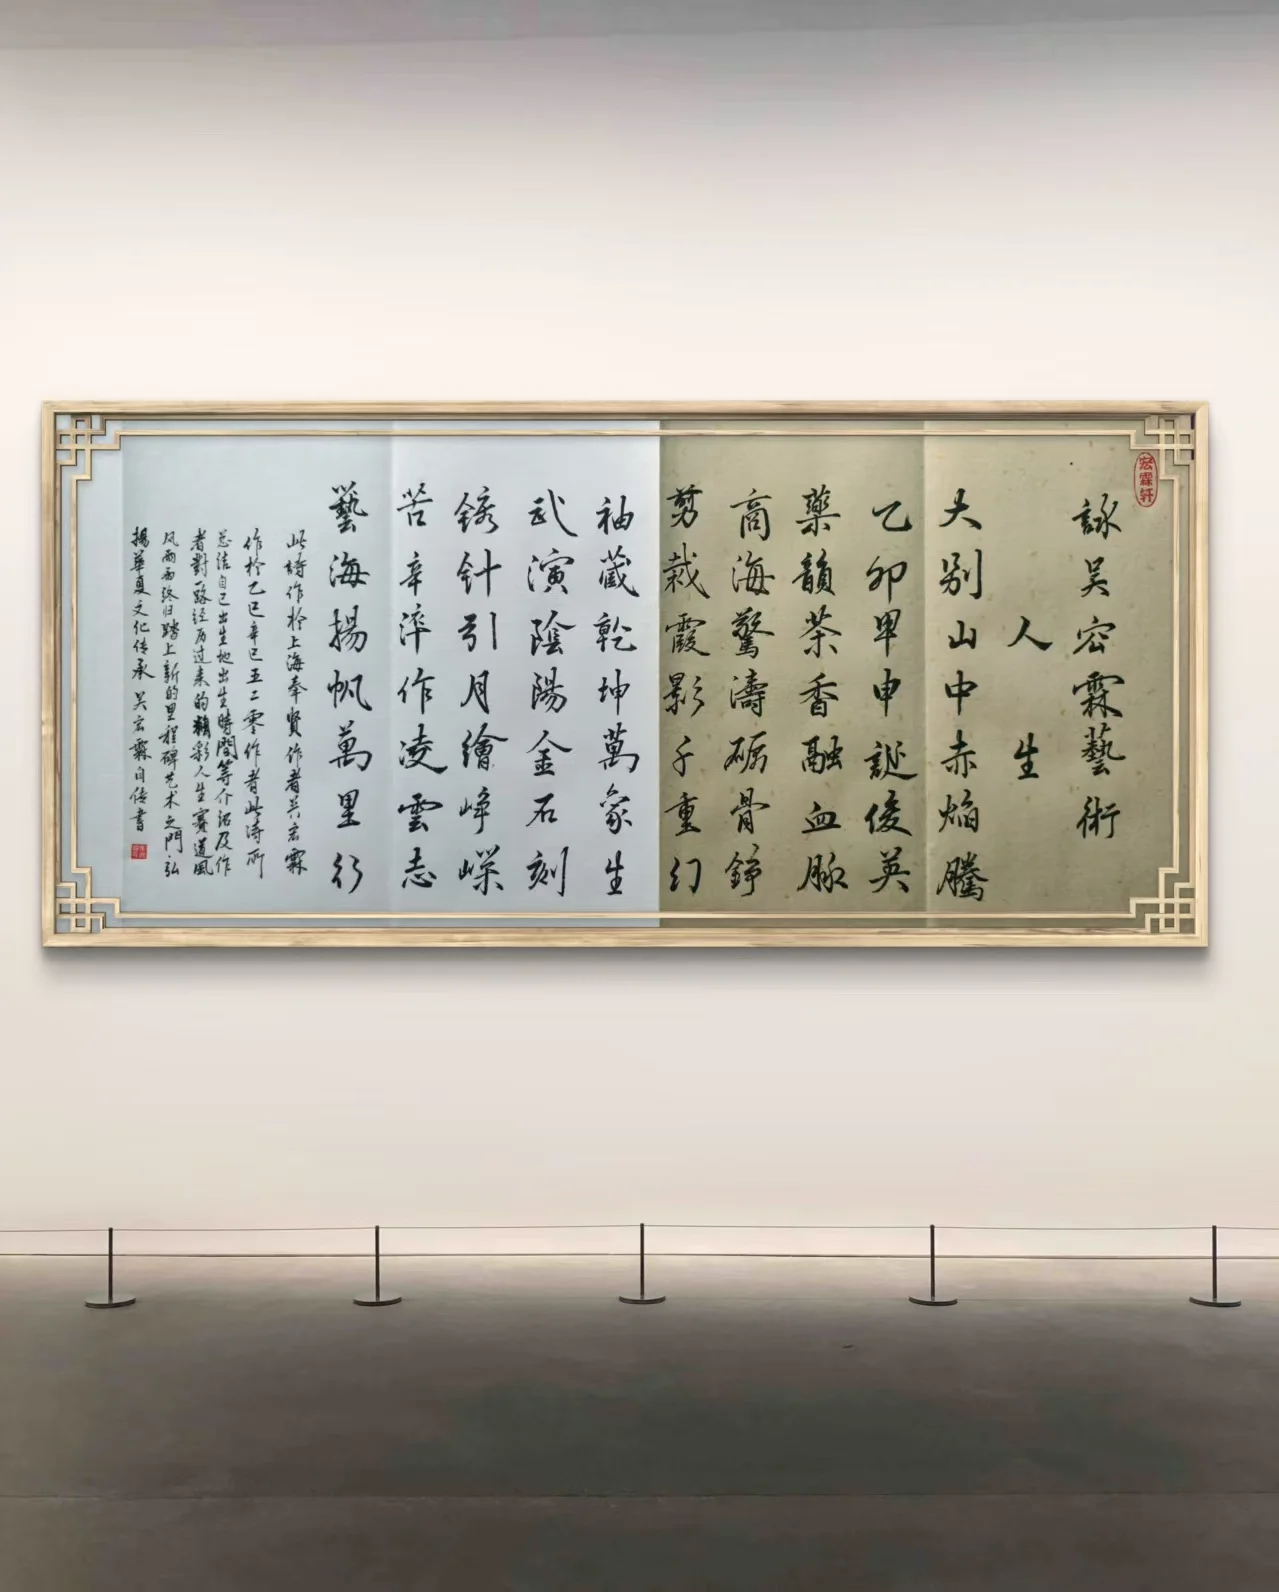 宏霖轩
詠吴宏霖藝術
人生
大别山中赤焰騰
乙卯甲申誕俊英
藥韻茶香融血脈
商海驚濤砺骨錚
剪裁霞影千重幻
袖藏乾坤萬象生
武演陰陽金石刻
銹針引月繪崢嶸
苦辛淬作凌雲志
藝海揚帆萬里行
此詩作於上海奉賢作者吴宏霖
作於乙巳辛巳五二零作者此诗所
总结自己出生地出生時間等介绍及作
者對路经历过来的精彩人生赛道風
风雨雨终归踏上新的里程碑艺术之門弘
揚華夏文化传承吴宏霖自传書